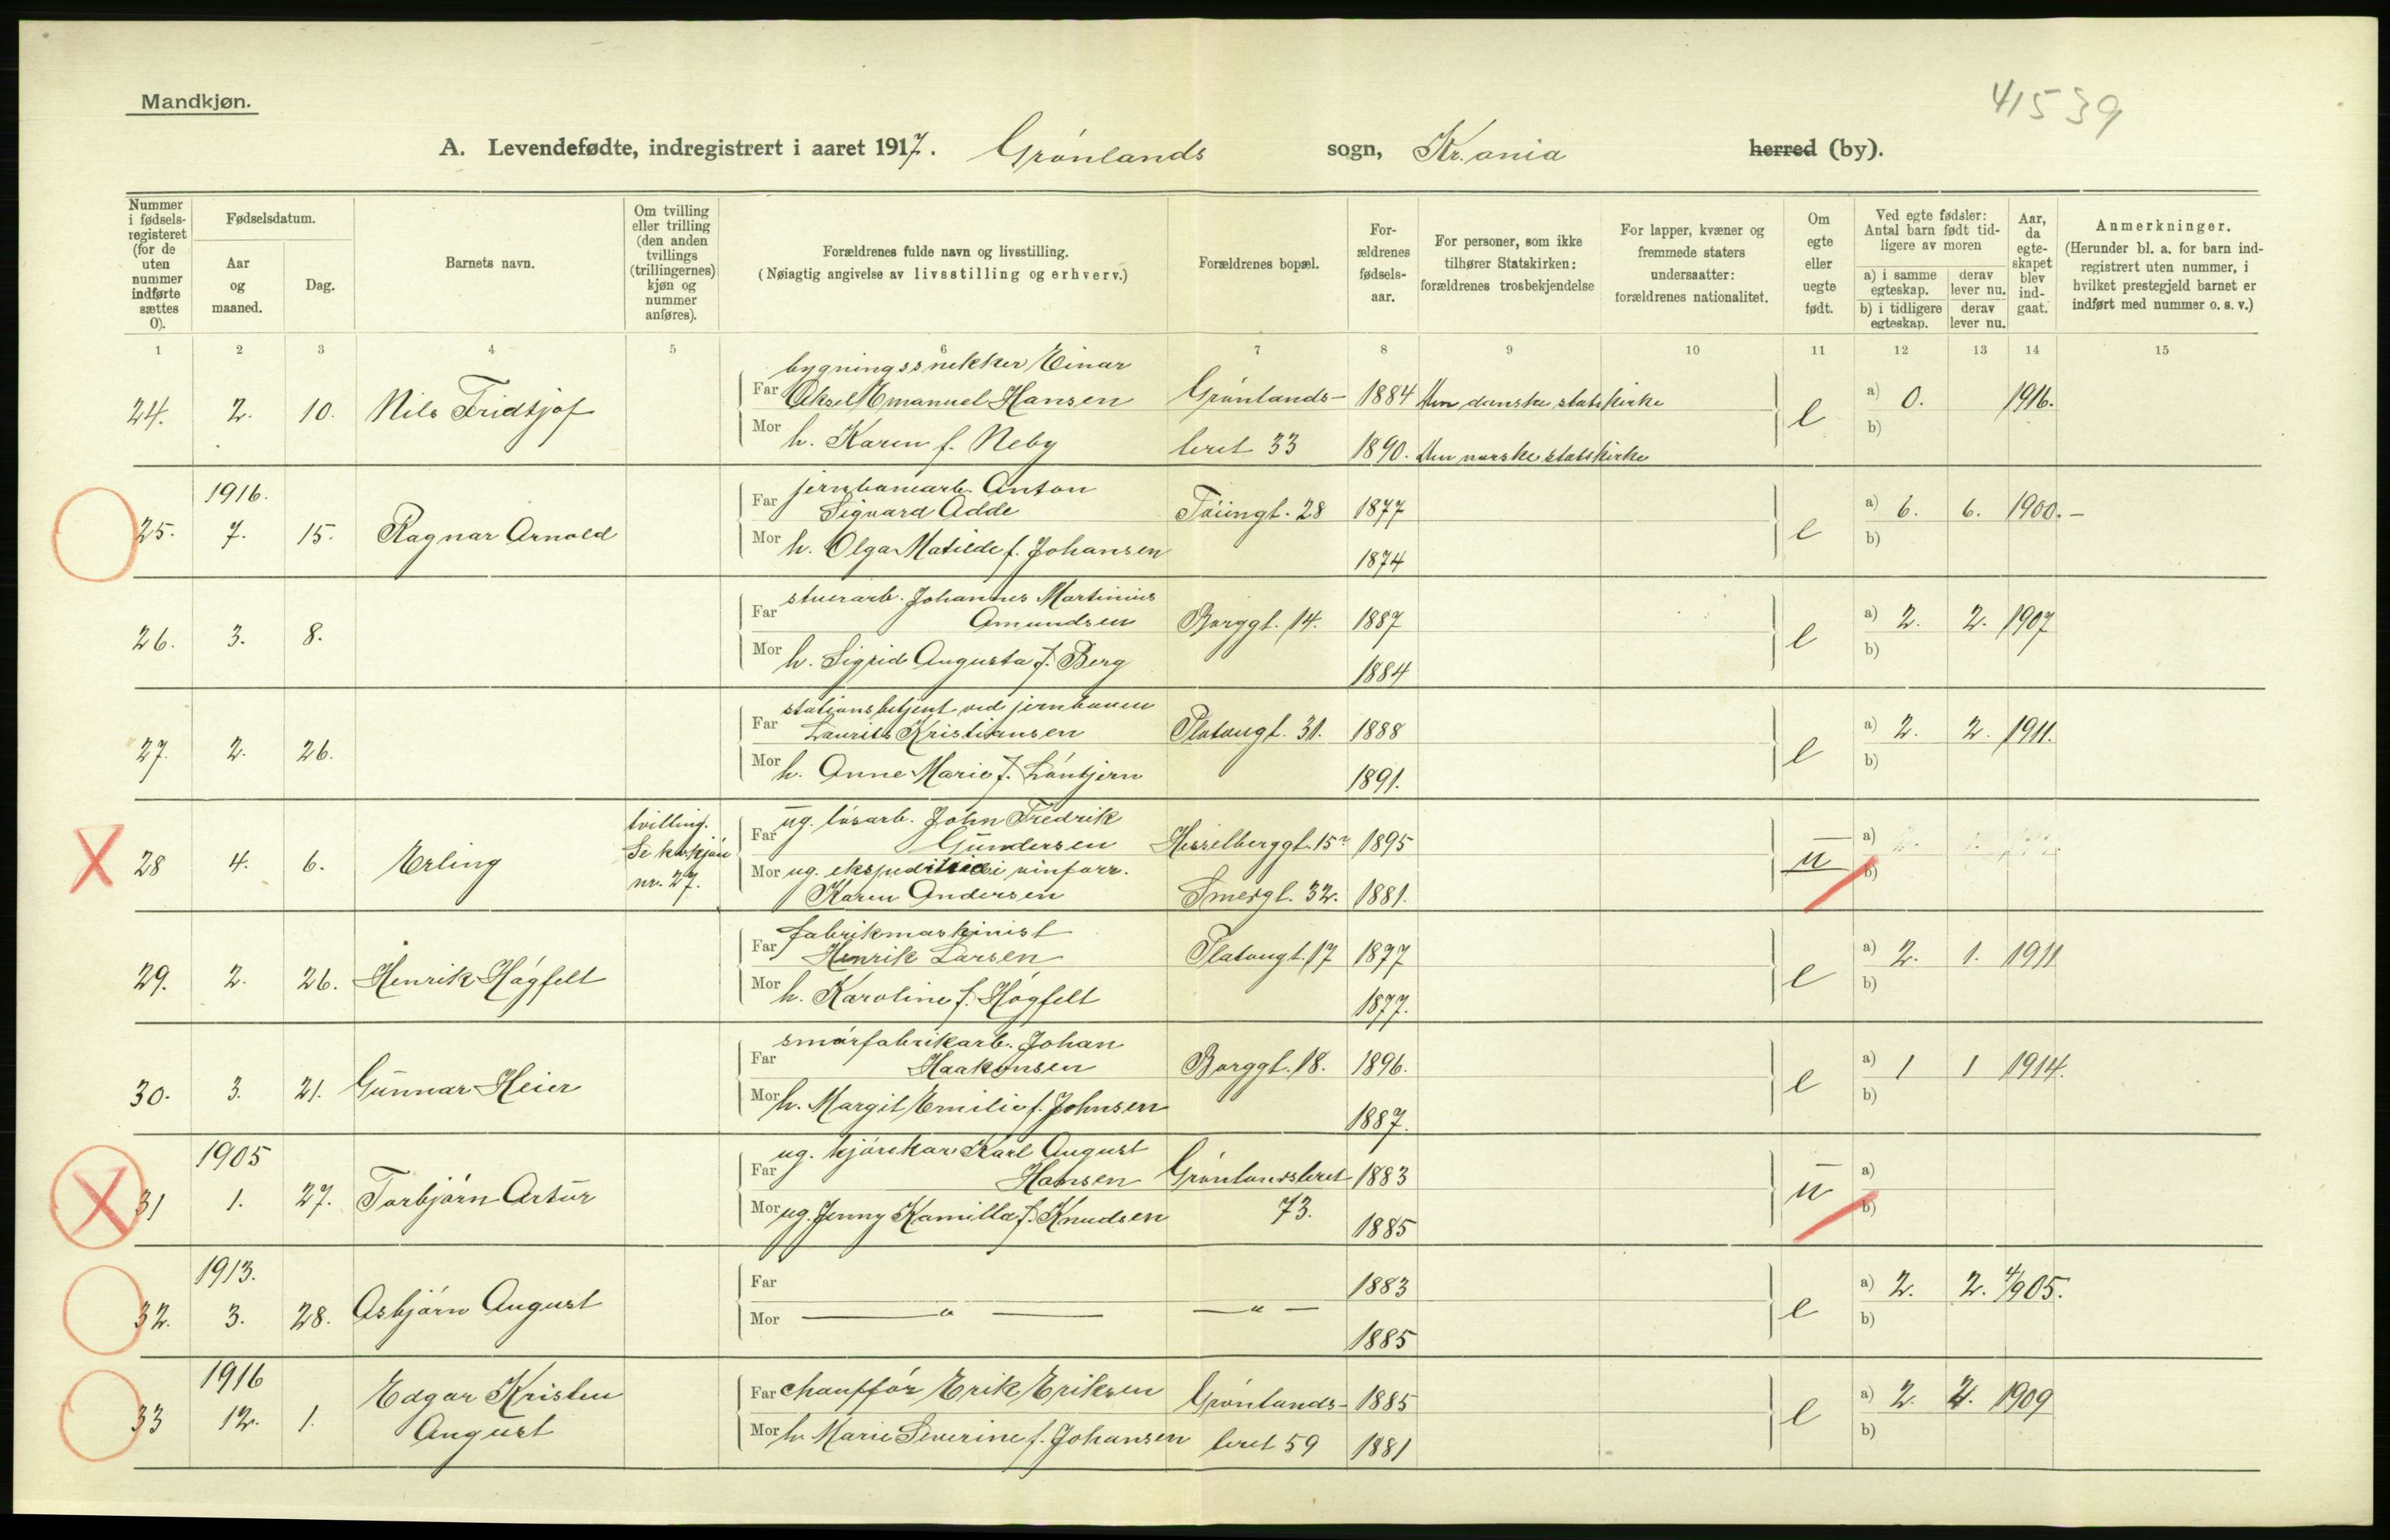 Mandkjøn.
41539
A. Levendefødte, indregistrert i aaret 1917. Grønlands sogn, Kr.ania herred (by).
Nummer i fødsels-registeret (for de uten nummer indførte sættes 0).
Fødselsdatum.
Aar og maaned.
Dag.
Barnets navn.
Om tvilling eller trilling (den anden tvillings (trillingernes) kjøn og nummer anføres).
Forældrenes fulde navn og livsstilling.
(Nøiagtig angivelse av livsstilling og erhverv.)
Forældrenes bopæl.
For-ældrenes fødsels-aar.
For personer, som ikke tilhører Statskirken: forældrenes trosbekjendelse
For lapper, kvæner og fremmede staters undersaatter: forældrenes nationalitet.
Om egte eller uegte født.
Ved egte fødsler: Antal barn født tid-ligere av moren
a) i samme egteskap. derav lever nu.
b) i tidligere egteskap. derav lever nu.
Aar, da egte-skapet blev ind-gaat.
Anmerkninger.
(Herunder bl. a. for barn ind-registrert uten nummer, i hvilket prestegjeld barnet er indført med nummer o. s. v.)
1 2 3 4 5 6 7 8 9 10 11 12 13 14 15
bygningssnekker Einar
24. 2. 10. Nils Fridtjof Far Aksel Emanuel Hansen Grønlands- 1884 Den danske statskirke e a) 0. 1916.
Mor h. Karen f. Neby leret 33 1890. Den norske statskirke b)
1916. jernbanearb. Anton
25. 7. 15. Ragnar Arnold Far Sigvard Adde Tøiengt. 28 1877 e a) 6. 6. 1900.-
Mor h. Olga Matilde f. Johansen 1874 b)
stuerarb. Johannes Martinius
26. 3. 8. Far Amundsen Borggt. 14. 1887 e a) 2. 2. 1907
Mor h. Sigrid Augusta f. Berg 1884 b)
stationsbetjent ved jernbanen
27. 2. 26. Far Laurits Kristiansen Platougt. 31. 1888 e a) 2. 2. 1911.
Mor h. Anne Marie f. Løntjern 1891. b)
tvilling. ug. løsarb. John Fredrik
28 4. 6. Erling Se kvkjøn Far Gundersen Hesselberggt. 15 1895 u a)
nr. 27. Mor ug. ekspeditrice i vinforr.
Karen Andersen Smedgt. 32. 1881. b)
fabrikmaskinist
29. 2. 26. Henrik Høgfelt Far Henrik Larsen Platougt. 17 1877 e a) 2. 1. 1911
Mor h. Karoline f. Høgfelt 1877. b)
smørfabrikarb. Johan
30. 3. 21. Gunnar Heier Far Haakonsen Borggt. 18. 1896. e a) 1 1 1914.
Mor h. Margit Emilie f. Johnsen 1887. b)
1905 ug. kjørekar Karl August
31 1. 27. Torbjørn Artur Far Hansen Grønlandsleret 1883 u a)
Mor ug. Jenny Kamilla f. Knudsen 73. 1885 b)
1913.
32. 3. 28. Asbjørn August Far 1883 e a) 2. 2. 4/905.
Mor — " — — " — 1885 b)
1916
33 12. 1. Edgar Kristen Far chauffør Erik Eriksen Grønlands- 1885 e a) 2. 2. 1909
August Mor h. Marie Severine f. Johansen leret 59 1881 b)